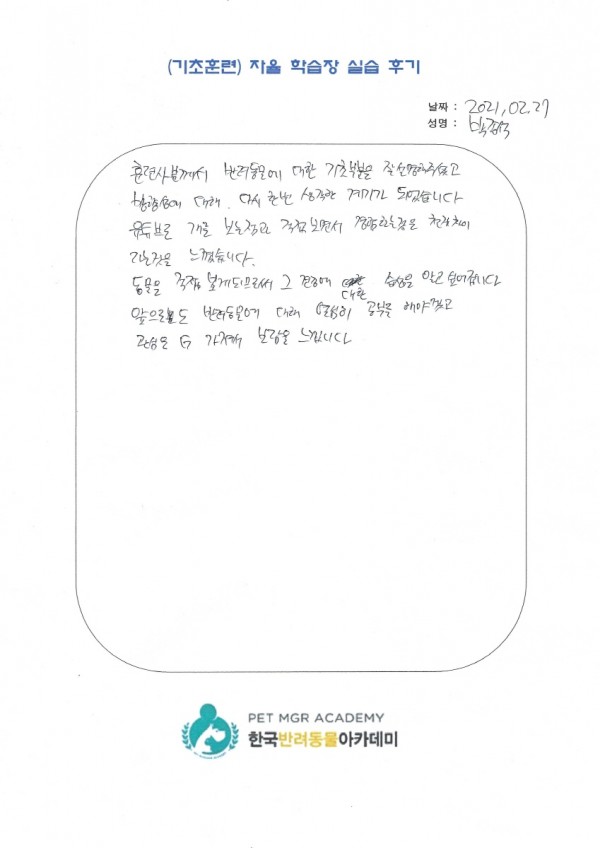 (기초훈련) 자율 학습장 실습 후기
날짜 : 2021.02.27
성명 :
훈련사분께서 반려동물에 대한 기초부분을 잘 설명해주셨고
대해. 다시 한번 생각한 계기가 되었습니다
유튜브로 개를 보는것과 직접 보면서 경험하는것은 천지차이
라는것을 느꼈습니다.
동물을 직접 볼게되므로써 그 대한 습성을 알고 싶어집니다
앞으로도 반려동물에 대해 열심히 공부를 해야겠고
관심을 더 가져야 보람을 느낍니다
PET MGR ACADEMY
한국반려동물아카데미